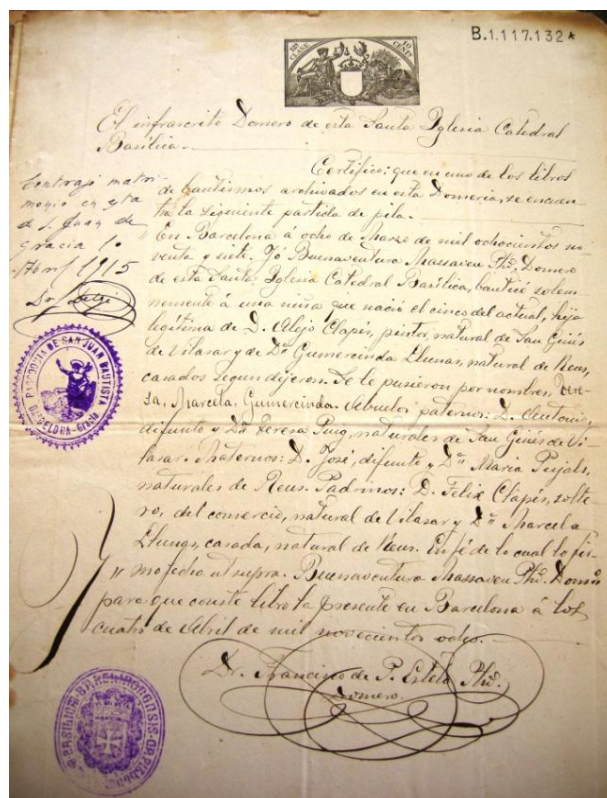 B.1.117.132*
El infrascrito Domero de esta Santa Iglesia Catedral
Basílica.
Certifico: que en uno de los libros
de bautismos archivados en esta Domeria, se encuen
tra la siguiente partida de pila.
En Barcelona a ocho de Marzo de mil ochocientos no
venta y siete. Yó Buenaventura Massaveu Pbo. Domero
de esta Santa Iglesia Catedral Basílica, bauticé solem
nemente á una niña que nació el cinco del actual, hija
legítima de D. Alejo Clapés, pintor, natural de San Ginés
de Vilasar y de Da. Gumercinda Llunas, natural de Reus,
casados segun dijeron. Se le pusieron por nombres, Tere
sa, Marcela, Gumercinda. Abuelos paternos: D. Antonio,
difunto y Da. Teresa Puig, naturales de San Ginés de Vi
lasar. Maternos: D. José, difunto y Da. Maria Pujals,
naturales de Reus. Padrinos: D. Felix Clapés, solte
ro, del comercio, natural de Vilasar y Da. Marcela
Llunas, casada, natural de Reus. En fé de lo cual lo fir
mo fecho ut supra. Buenaventura Massaveu Pbo. Domo.
para que conste libro la presente en Barcelona á los
cuatro de Abril de mil novecientos ocho.
Dr. Francisco de P. Estela Pbo.
Domero.
Contrajo matri
monio en esta
de S. Juan de
Gracia 1o.
Abril 1915
Dr.
PARROQUIA DE SAN JUAN BAUTISTA
BARCELONA-Gracia